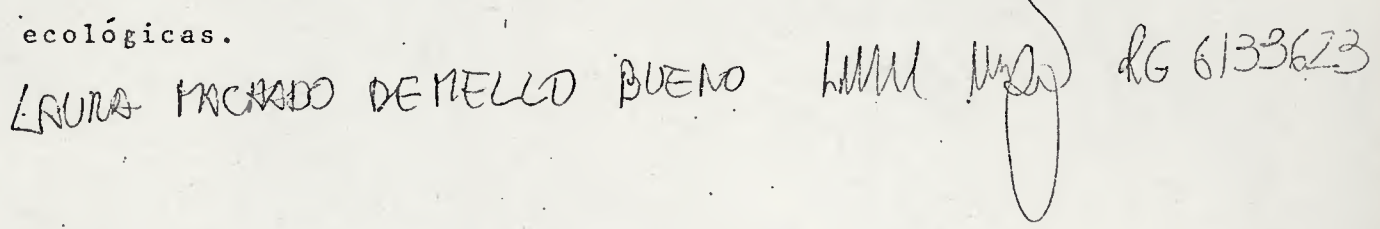 ecológicas.
LAURA MACHADO DE MELLO BUENO RG 6133623